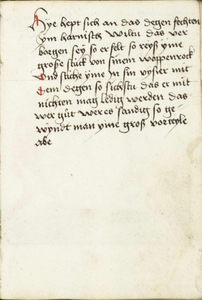 Hye hept sich an das degen fechten
ym harnisch wiltu das ver
borgen sey so er felt so reyß yme
große stuck von sinem woppenrock
Vnd stiche yme in sin vysier mit
dem degen so sichstu das er mit
nichten mag ledig werden das
wer gůt wer es sandig so ge
wyndt man yme groß vorteyle
abe